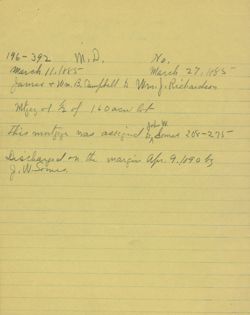 196-392 M.D. No.
March 11, 1885 March 27, 1885
James & Wm. B. Campbell to Wm. J. Richardson
Mtge of 1/2 of 160 acre lot
This mortgage was assigned by John W. Somes 208-275
Discharged on the margin Apr. 9, 1890 by
J. W. Somes.